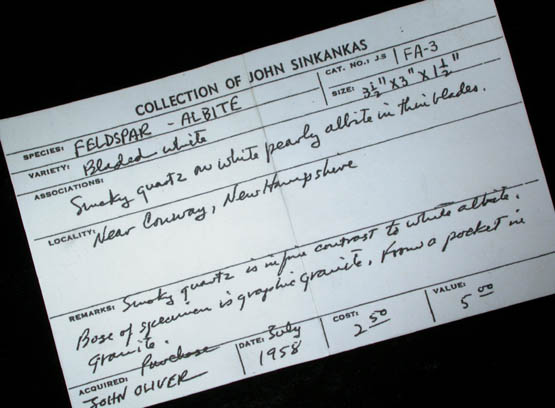 COLLECTION OF JOHN SINKANKAS
SPECIES: FELDSPAR - ALBITE
CAT. NO.: J.S FA-3
VARIETY: Bladed white
SIZE: 3½" x 3" x 1½"
ASSOCIATIONS:
Smoky quartz on white pearly albite in thin blades.
LOCALITY: Near Conway, New Hampshire
REMARKS: Smoky quartz is in fine contrast to white albite.
Base of specimen is graphic granite. From a pocket in
granite.
ACQUIRED: Purchase
JOHN OLIVER
DATE: July
1958
COST:
2 50
VALUE:
5 00